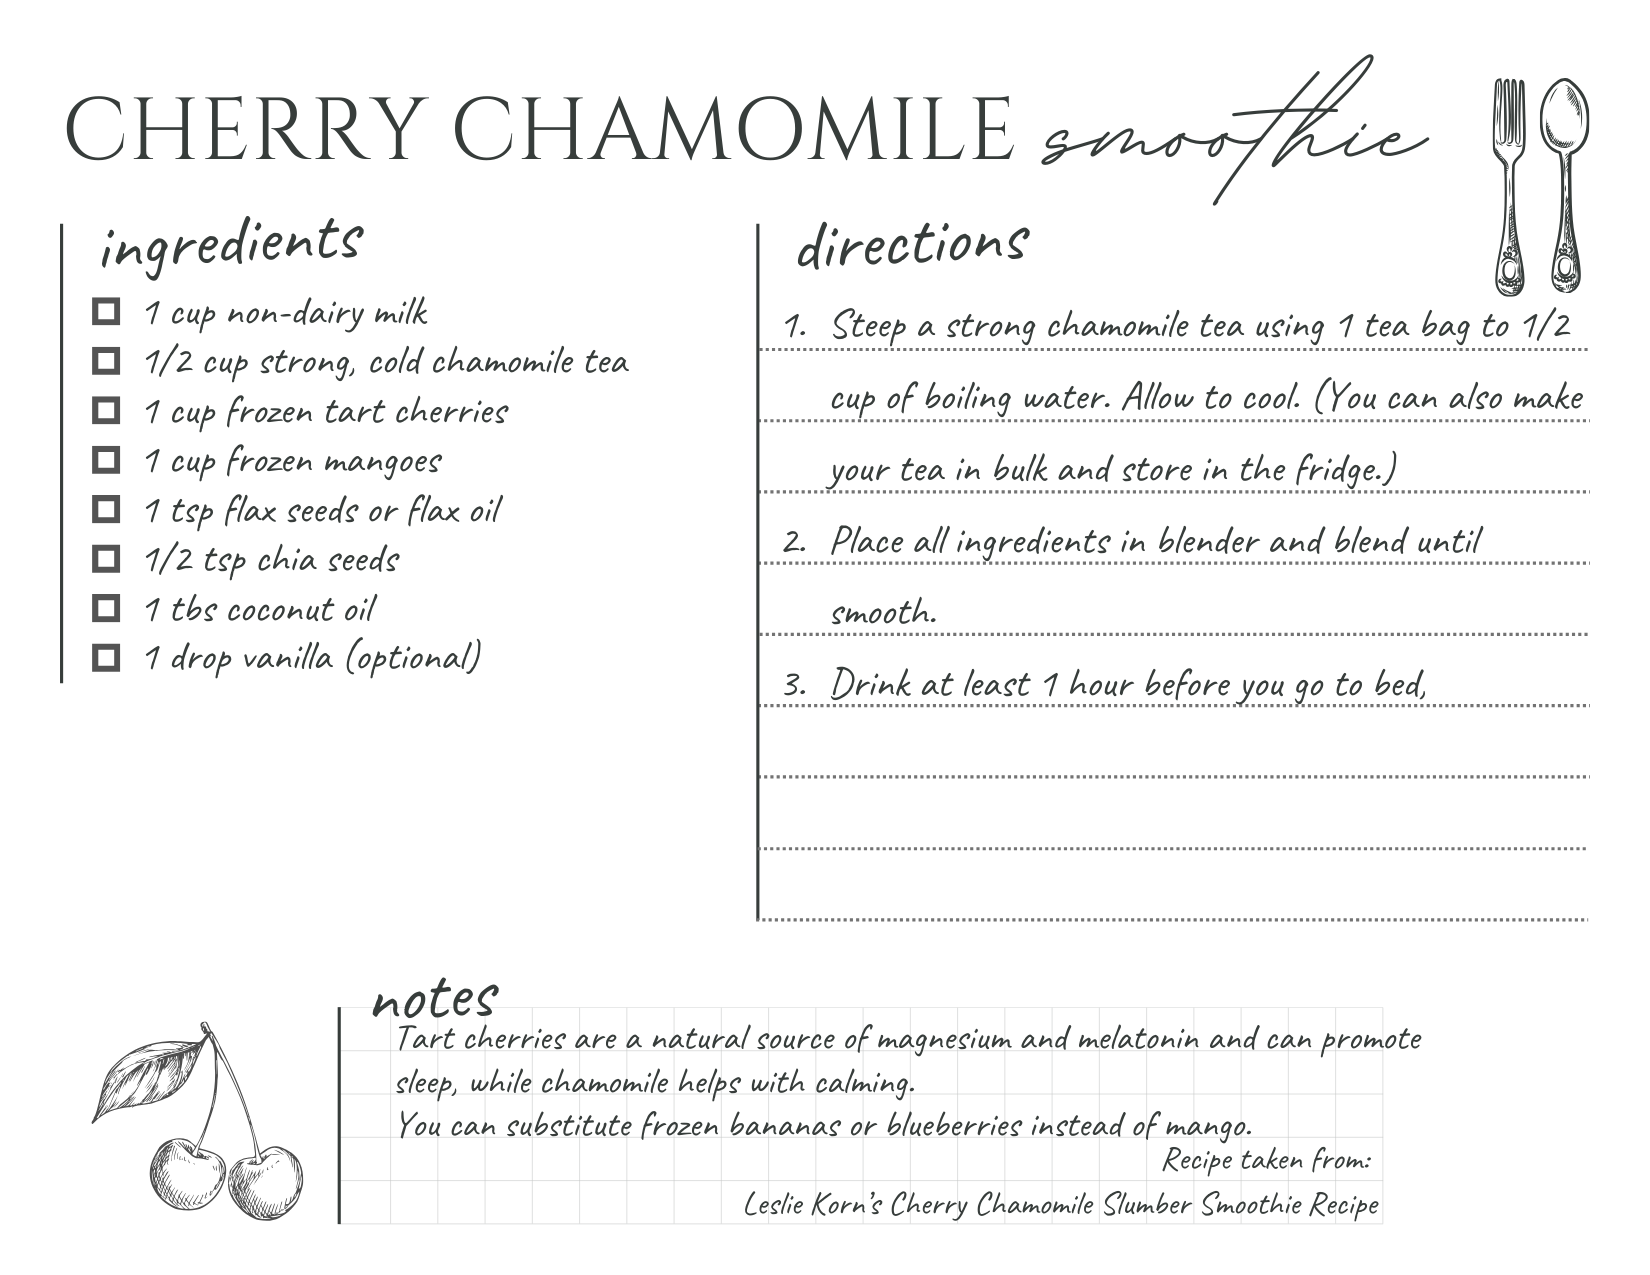 CHERRY CHAMOMILE smoothie
ingredients
1 cup non-dairy milk
1/2 cup strong, cold chamomile tea
1 cup frozen tart cherries
1 cup frozen mangoes
1 tsp flax seeds or flax oil
1/2 tsp chia seeds
1 tbs coconut oil
1 drop vanilla (optional)
directions
1. Steep a strong chamomile tea using 1 tea bag to 1/2
cup of boiling water. Allow to cool. (You can also make
your tea in bulk and store in the fridge.)
2. Place all ingredients in blender and blend until
smooth.
3. Drink at least 1 hour before you go to bed,
notes
Tart cherries are a natural source of magnesium and melatonin and can promote
sleep, while chamomile helps with calming.
You can substitute frozen bananas or blueberries instead of mango.
Recipe taken from:
Leslie Korn's Cherry Chamomile Slumber Smoothie Recipe